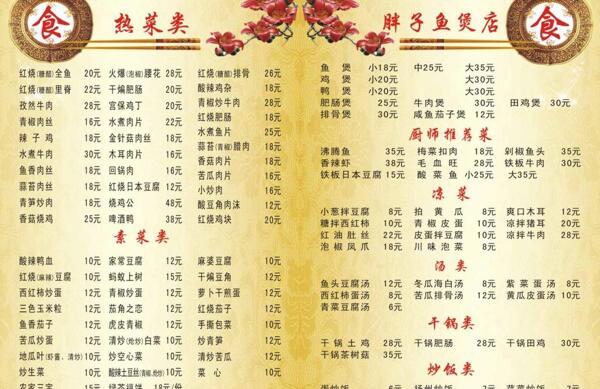 食
热菜类
红烧(糖醋)全鱼 20元
红烧(糖醋)里脊 22元
孜然牛肉 28元
青椒肉丝 16元
辣子鸡 28元
水煮牛肉 30元
鱼香肉丝 18元
蒜苔肉丝 18元
青笋炒肉 18元
香菇烧鸡 25元
火爆(泡椒)腰花 28元
干煸肥肠 28元
宫保鸡丁 20元
水煮肉片 22元
金针菇肉丝 18元
木耳肉片 16元
回锅肉 18元
红烧日本豆腐 12元
烧鸡公 28元
啤酒鸭 38元
红烧(糖醋)排骨 26元
酸辣鸡杂 18元
青椒炒牛肉 30元
红烧肥肠 28元
水煮鱼片 25元
蒜苔(青椒)腊肉 18元
香菇肉片 16元
苦瓜肉片 16元
小炒肉 16元
酸豆角肉沫 12元
红烧鸡块 20元
素菜类
酸辣鸭血 10元
红烧(麻辣)豆腐 10元
西红柿炒蛋 12元
三色玉米粒 12元
鱼香茄子 12元
苦瓜炒蛋 12元
地瓜叶(虾酱、清炒) 12元
炒生菜 10元
家常豆腐 12元
蚂蚁上树 15元
青椒炒蛋 12元
茄角之恋 12元
虎皮青椒 12元
清炒(炝炒)白菜 10元
炒空心菜 10元
酸辣土豆丝(青椒,炝炒) 10元
18元/份
麻婆豆腐 10元
干煸豆角 12元
萝卜干煎蛋 12元
红烧茄子 12元
手撕包菜 10元
炒青笋 10元
清炒苦瓜 12元
菜心 10元
胖子鱼煲店
食
鱼煲 小18元 中25元 大35元
鸡煲 小20元 大30元
鸭煲 小20元 大30元
肥肠煲 25元 牛肉煲 30元 田鸡煲 30元
排骨煲 30元 咸鱼茄子煲 12元
厨师推荐菜
沸腾鱼 35元 梅菜扣肉 18元 剁椒鱼头 35元
香辣虾 38元 毛血旺 28元 铁板牛肉 35元
铁板日本豆腐 15元 酸菜鱼 小25元 大35元
凉菜
小葱拌豆腐 8元 拍黄瓜 8元 爽口木耳 12元
糖拌西红柿 10元 青椒皮蛋 10元 凉拌猪耳 20元
红油肚丝 22元 皮蛋拌豆腐 10元 凉拌牛肉 28元
泡椒凤爪 18元 川味泡菜 8元
汤类
鱼头豆腐汤 12元 冬瓜海白汤 8元 紫菜蛋汤 8元
西红柿蛋汤 8元 苦瓜排骨汤 12元 黄瓜皮蛋汤 10元
青菜豆腐汤 8元
干锅类
干锅土鸡 48元 干锅肥肠 48元 干锅田鸡 30元
干锅茶树菇 35元
炒饭类